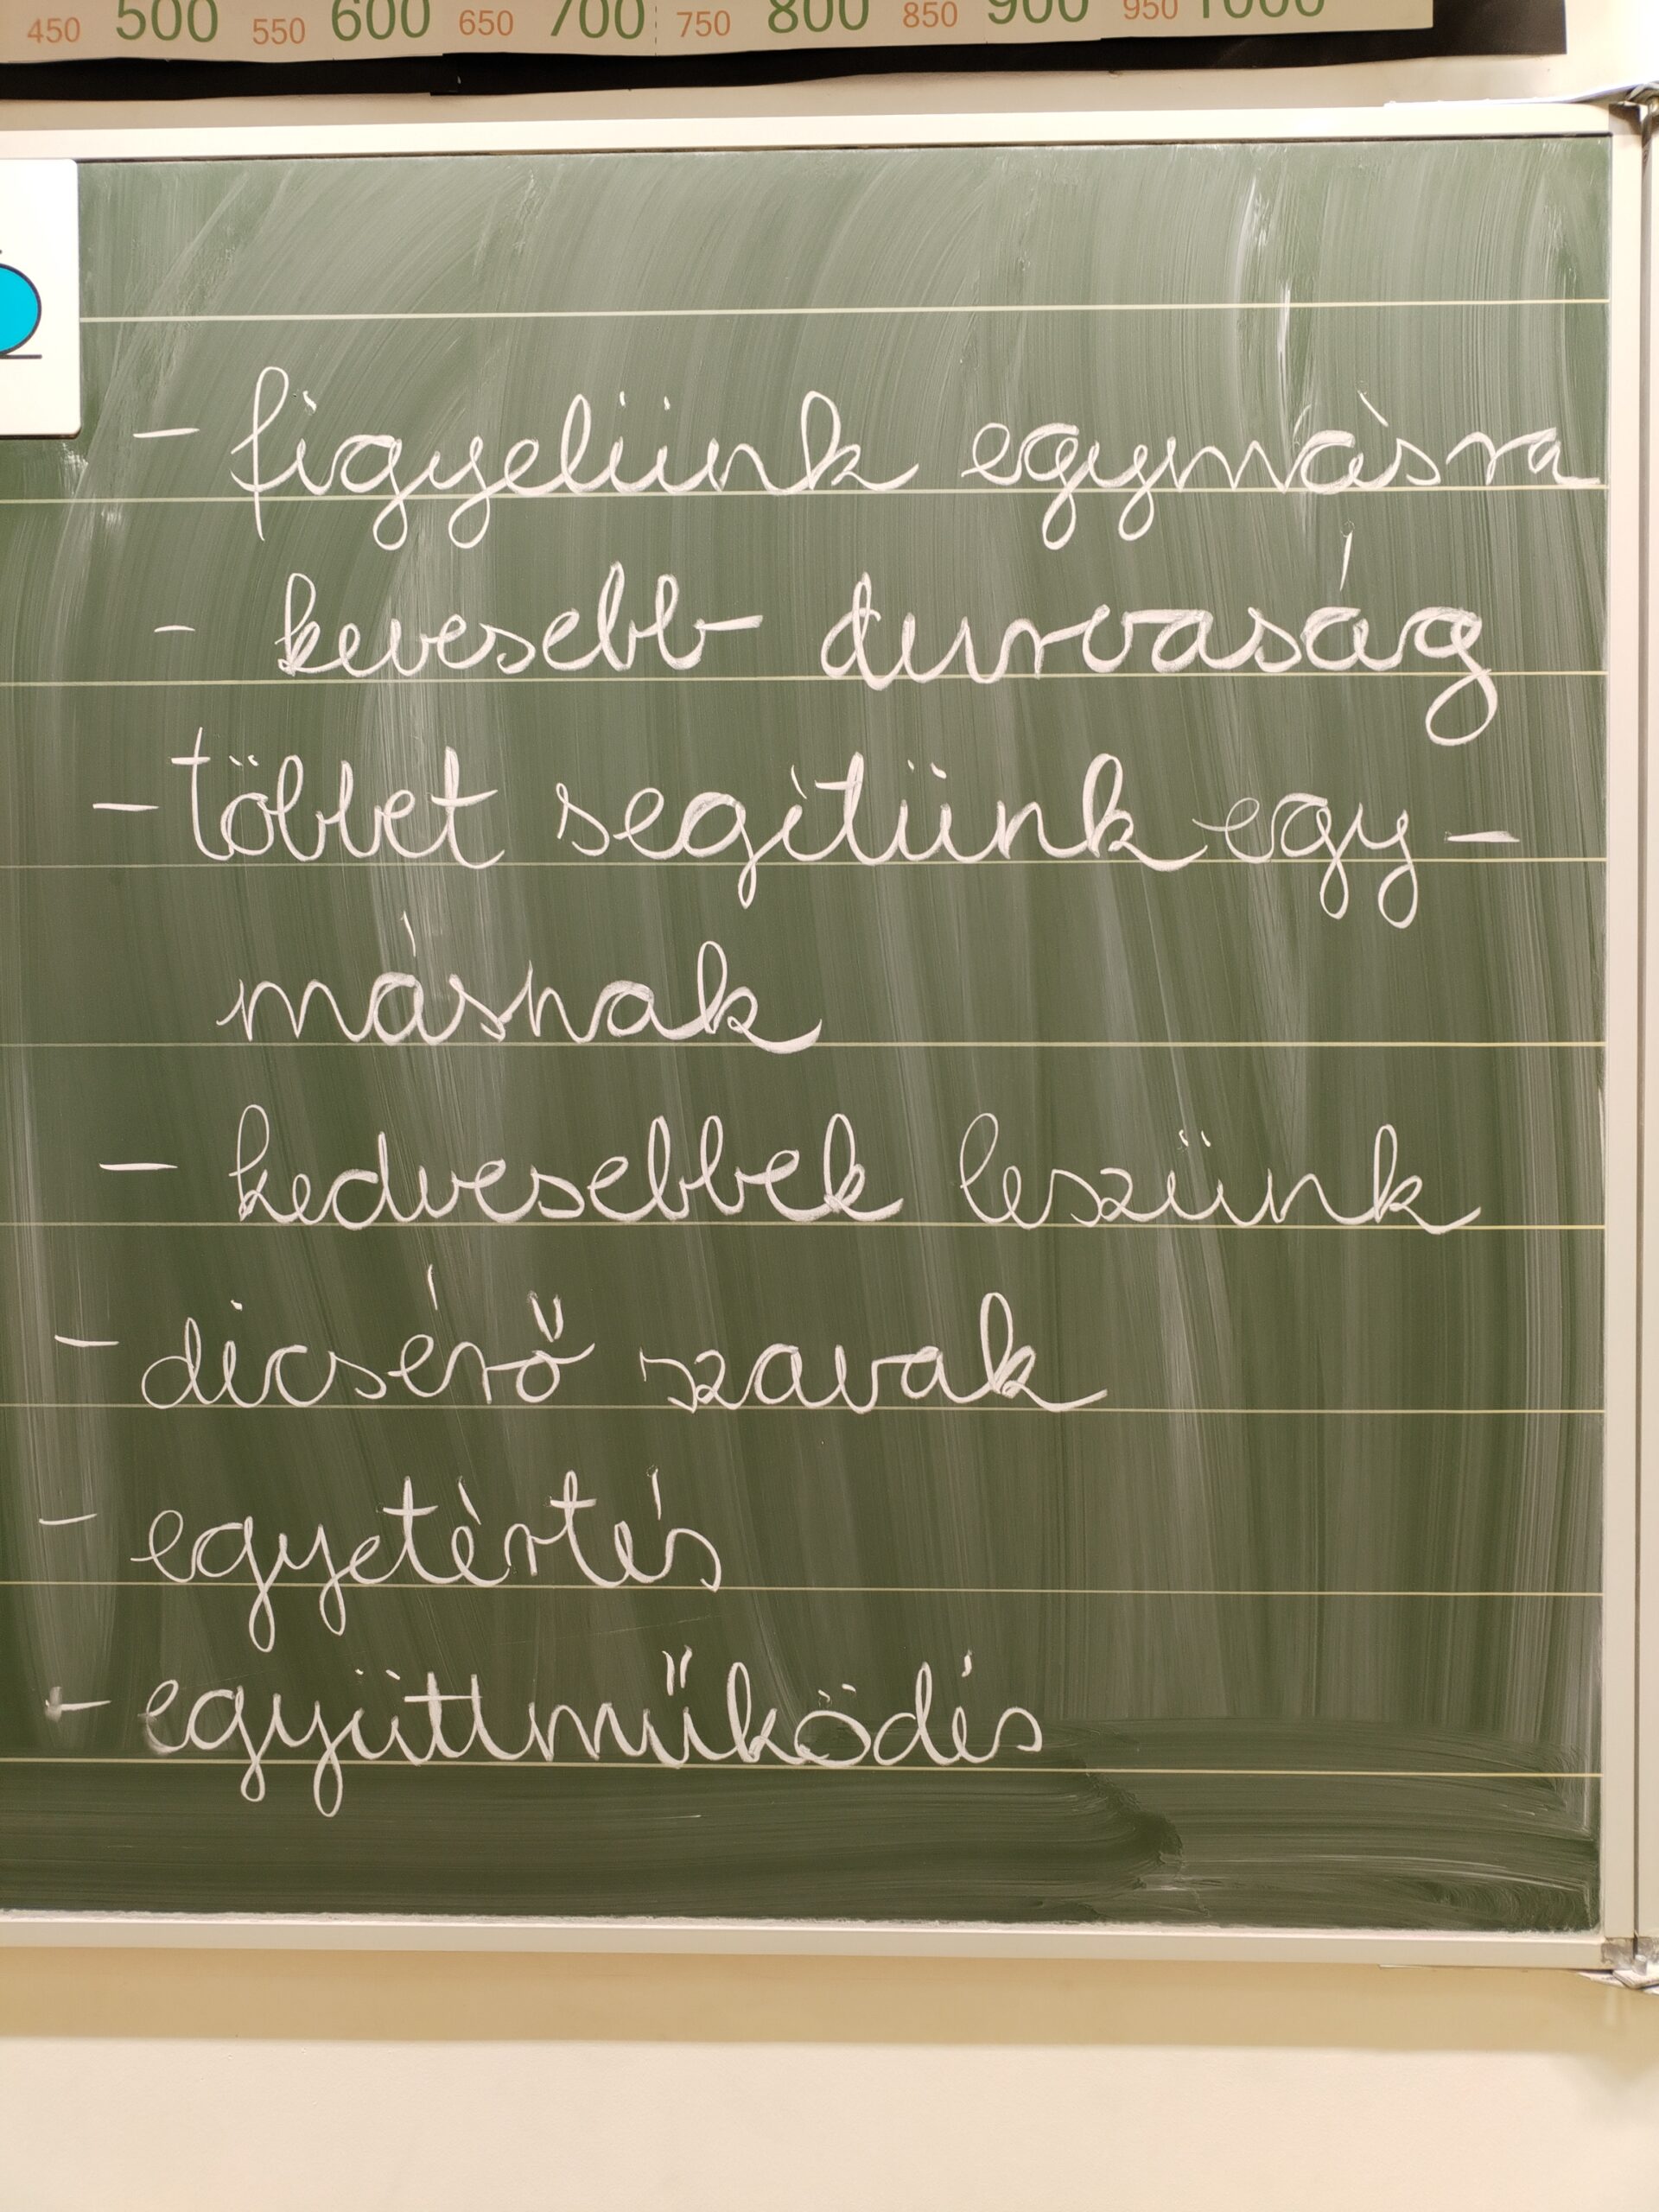 450 500 550 600 650 700 750 800 850 900 950 1000
- figyelünk egymásra
- kevesebb durvaság
- többet segítünk egy-
másnak
- kedvesebbek leszünk
- dicsérő szavak
- egyetértés
- együttműködés